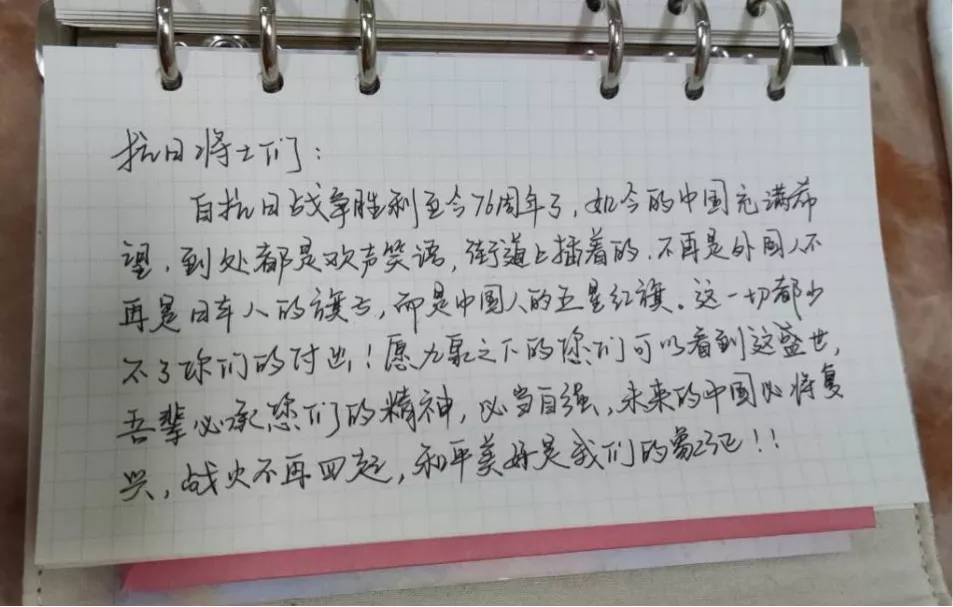 抗日将士们：
自抗日战争胜利至今76周年了，如今的中国充满希
望，到处都是欢声笑语，街道上插着的，不再是外国人不
再是日本人的旗号，而是中国人的五星红旗。这一切都少
不了你们的付出！愿九泉之下的你们可以看到这盛世，
吾辈必承您们的精神，必当自强，未来的中国必将复
兴，战火不再四起，和平美好是我们的！！